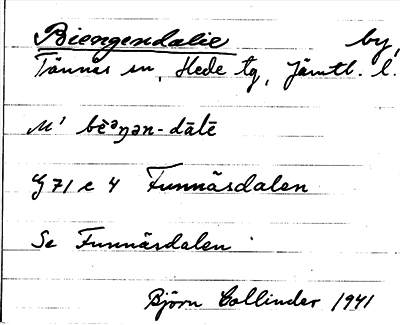 Biengendalie by,
Tännäs sn, Hede tg, Jämtl. l.
M' bḕᵊŋən-dālē
G 71 c 4 Funnäsdalen
Se Funnäsdalen
Björn Collinder 1941